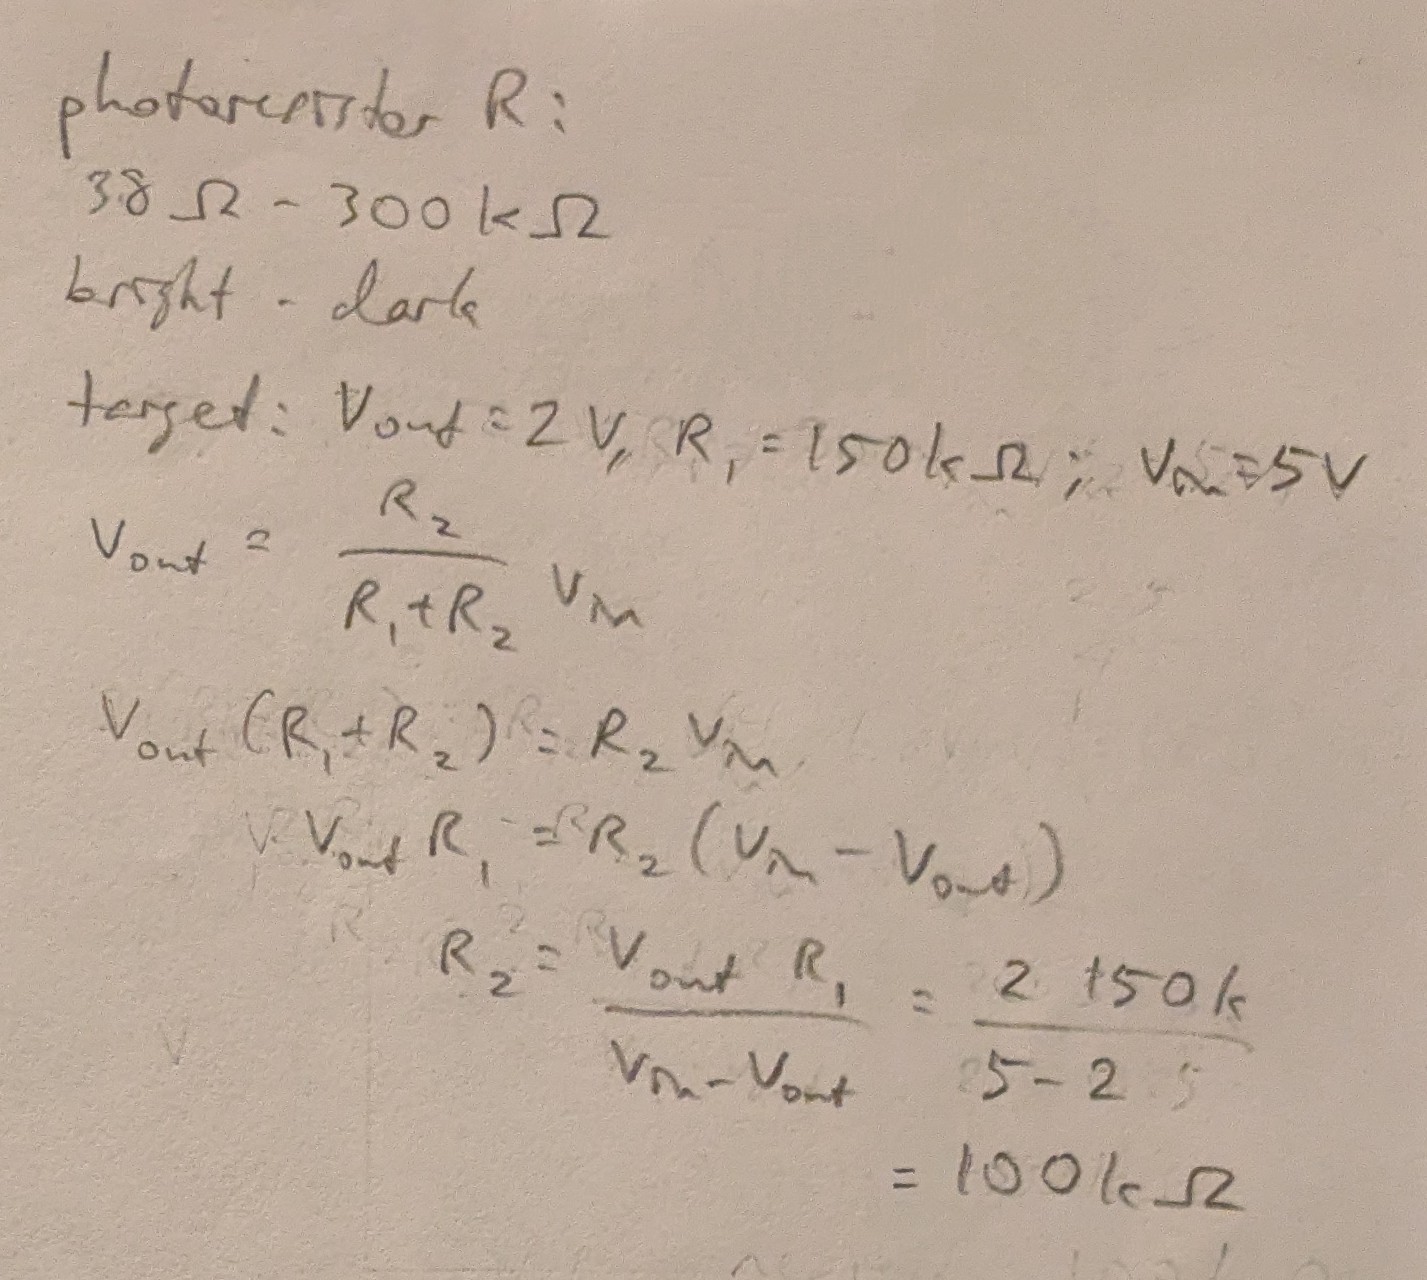 photoresistor R:
38 Ω - 300 k Ω
bright - dark
target: Vout = 2 V, R₁ = 150k Ω; Vin = 5 V
Vout = R₂ / (R₁ + R₂) Vin
Vout (R₁ + R₂) = R₂ Vin
Vout R₁ = R₂ (Vin - Vout)
R₂ = Vout R₁ / (Vin - Vout) = 2 150k / (5 - 2)
= 100k Ω